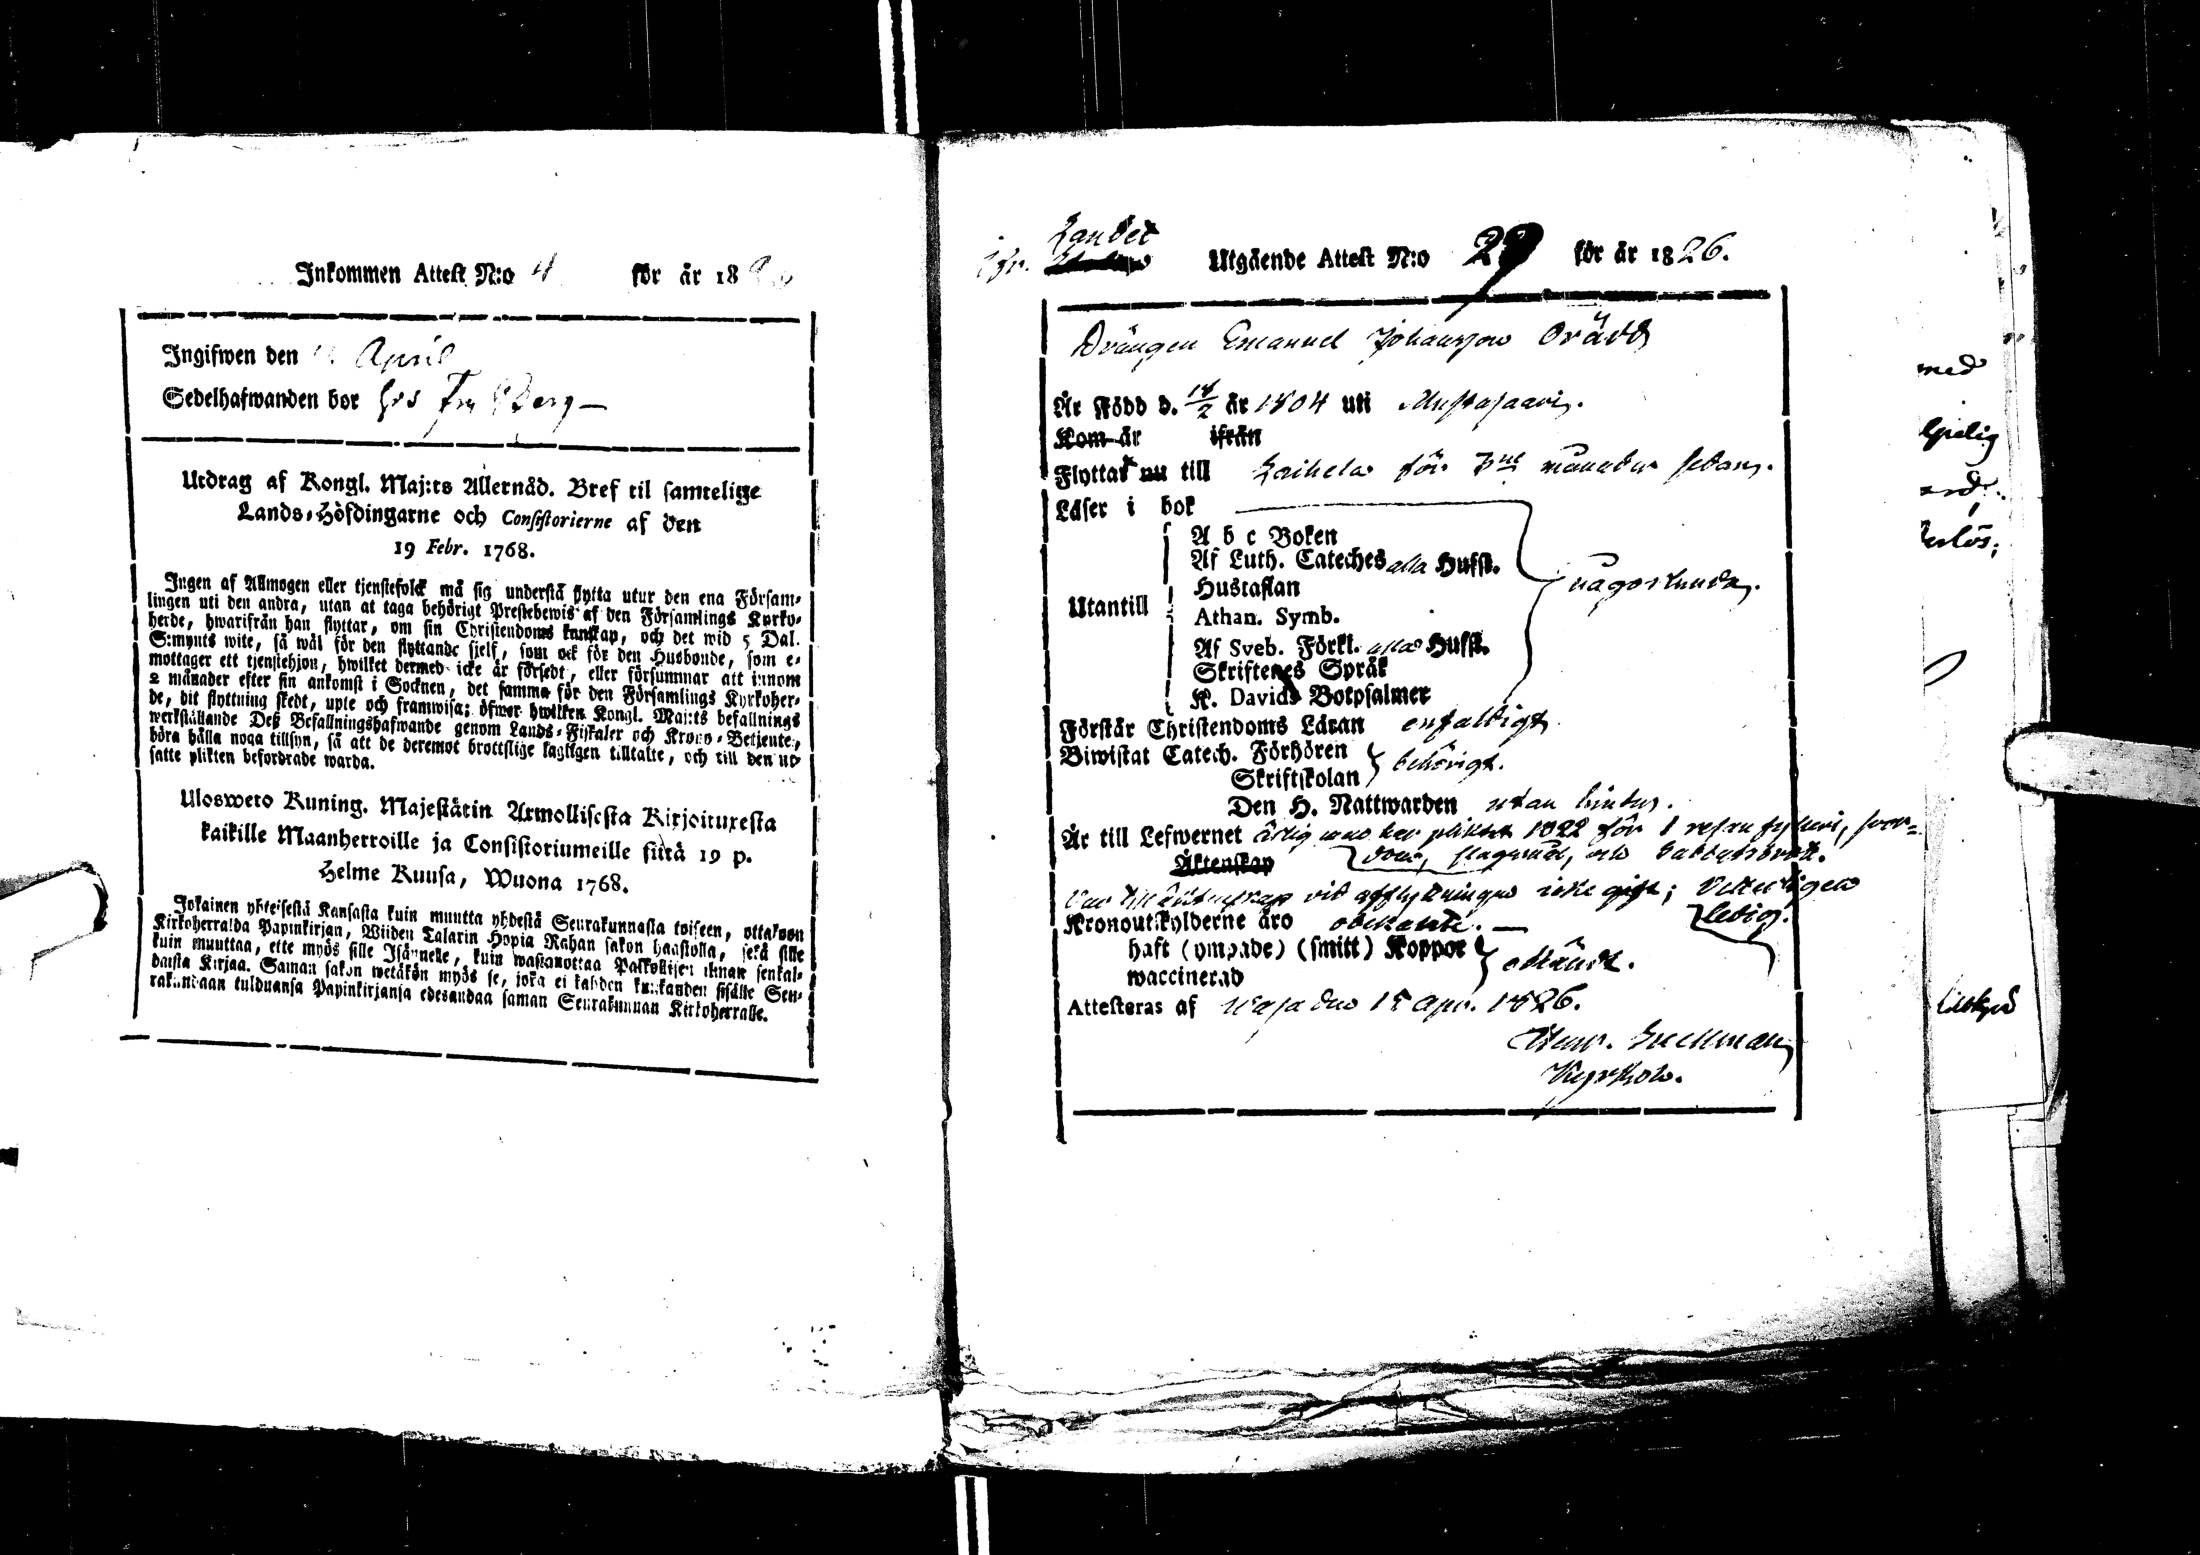 Inkommen Attest N:o 4 för år 18
Ingifwen den April
Sedelhafwanden bor hos Berg
Utdrag af Kongl. Maj:ts Allernåd. Bref til samtelige
Lands-Höfdingarne och Consistorierne af den
19 Febr. 1768.
Ingen af Allmogen eller tjenstefolck må sig understå flytta utur den ena Försam-
lingen uti den andra, utan at taga behörigt Prestebewis af den Församlings Kyrko-
herde, hwarifrån han flyttar, om sin Christendoms kunskap, och det wid 5 Dal.
S:mynts wite, så wäl för den flyttande sielf, som ock för den Husbonde, som e-
mottager ett tjenstehjon, hwilket dermed icke är försedt, eller försummar att innom
2 månader efter sin ankomst i Socknen, det samma för den Församlings Kyrkoher-
de, dit flyttning skedt, upte och framwisa; öfwer hwilken Kongl. Maj:ts befallnings
werkställande Deß Befallningshafwande genom Lands-Fiskaler och Krono-Betjente,
böra hålla noga tillsyn, så att de deremot brottslige lagligen tilltalte, och till den ut-
satte plikten befordrade warda.
Ulosweto Kuning. Majestätin Armollisesta Kirjoituxesta
kaikille Maanherroille ja Consistoriumeille siitä 19 p.
Helme Kuusa, Wuona 1768.
Jokainen yhteisestä Kansasta kuin muutta yhdestä Seurakunnasta toiseen, ottakoon
Kirkoherralda Papinkirjan, Wiiden Talarin Hopia Rahan sakon haastolla, sekä sille
kuin muuttaa, ette myös sille Isännelle, kuin wastanottaa Palkollisen ilman senkal-
daista Kirjaa. Saman sakon wetäkön myös se, joka ei kahden kuukauden sisälle Seu-
rakundaan tulduansa Papinkirjansa edesandaa saman Seurakunnan Kirkoherralle.
Landet
Utgående Attest N:o 29 för år 1826.
Drängen Emanuel Johansson Orädd
Är Född d. 18/2 år 1804 uti Mustasaari.
Kom år ifrån
Flyttat nu till Laihela för månader sedan.
Läser i bok
A b c Boken
Af Luth. Cateches alla Hufst.
Hustaflan
någorlunda.
Utantill
Athan. Symb.
Af Sveb. Förkl. alla Hufst.
Skriftenes Språk
K. Davids Botpsalmer
Förstår Christendoms Läran enfaldigt
Biwistat Catech. Förhören
behörigt.
Skriftskolan
Den H. Nattwarden utan hinder.
Är till Lefwernet ärlig men har pliktat 1822 för 1 resan fylleri, swor-
Äktenskap
dom, slagsmål, och Sabbatsbrott.
Var till äktenskap vid afflyttningen icke gift; Vetterligen
ledig.
Kronoutskylderne äro obekante.
haft (ympade) (smitt) Koppor
okändt.
waccinerad
Attesteras af Wasa den 15 Apr. 1826.
Kyrkoh.
med